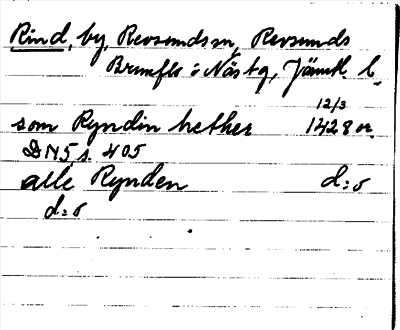 Rind, by, Revsunds sn, Revsunds
Brunflo o Näs tg, Jämtl l.
12/3
som Ryndin hether 1428 or.
DN 5 s. 405
alle Rynden d:o
d:o